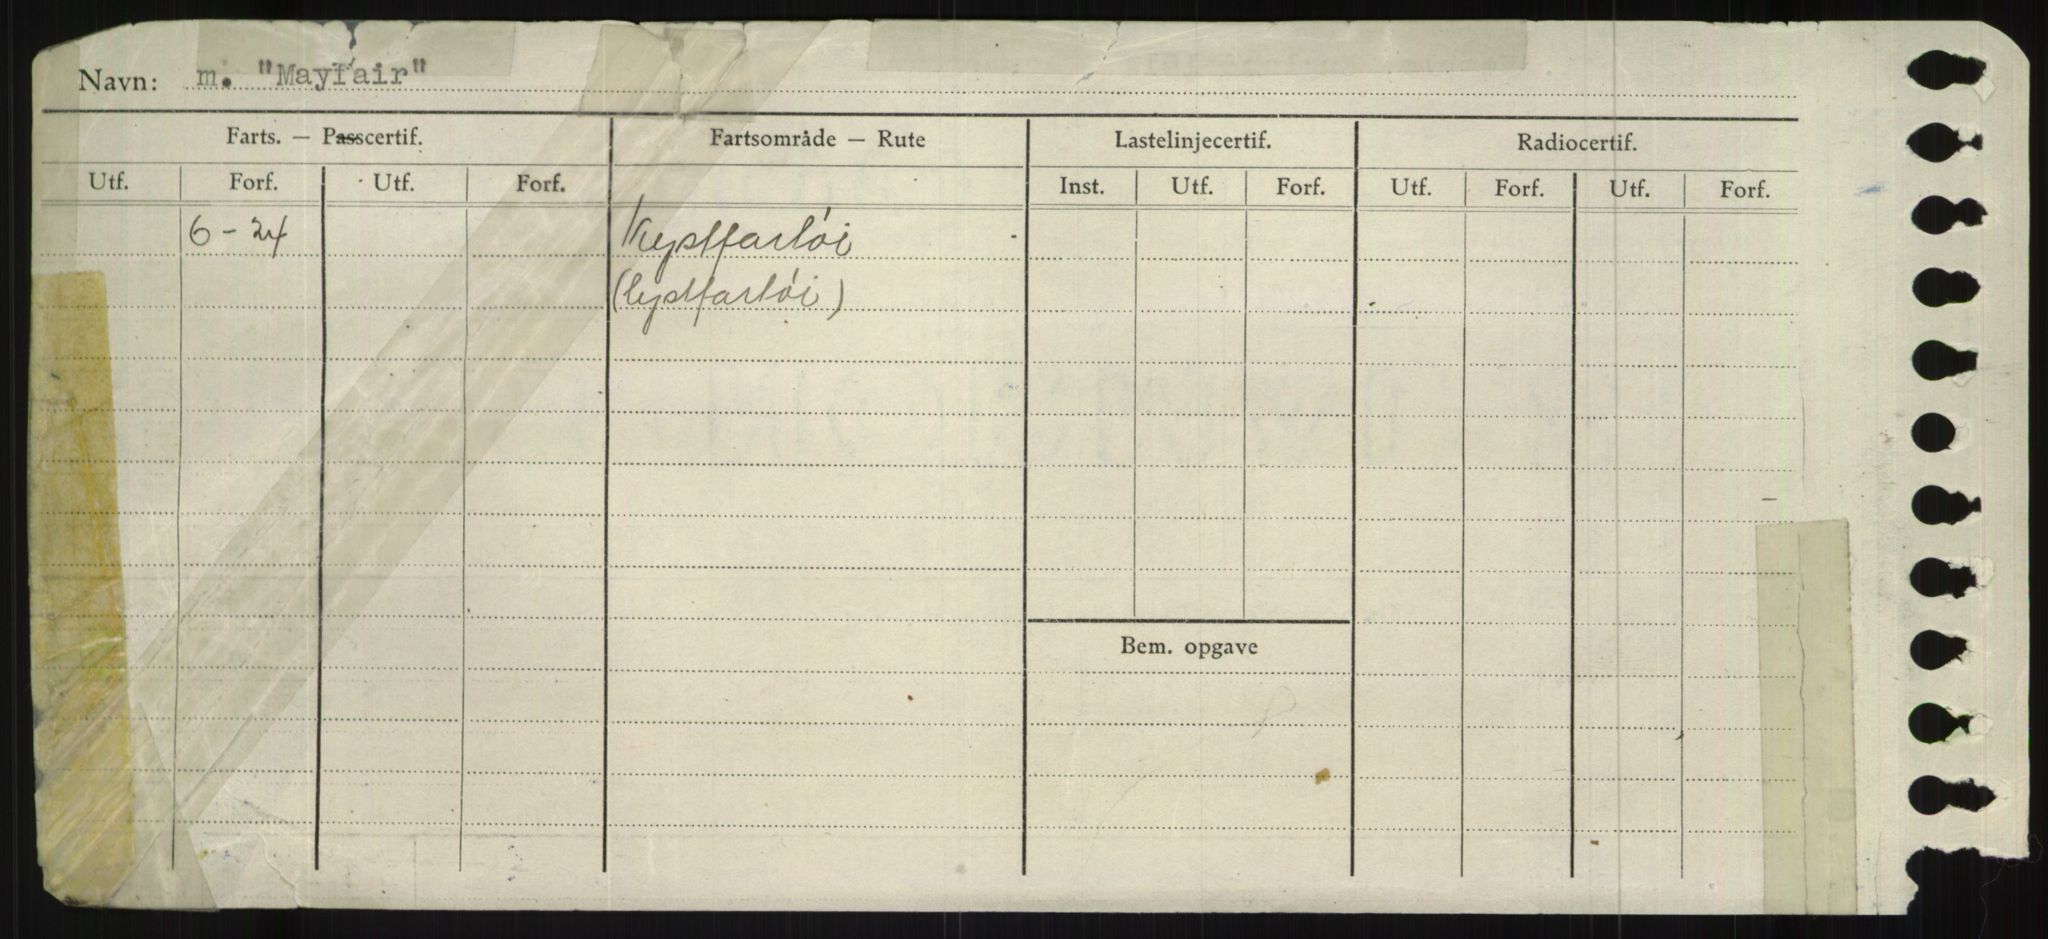 Navn: m. "Mayfair"
Farts. — Passcertif. Fartsområde — Rute Lastelinjecertif. Radiocertif.
Utf. Forf. Utf. Forf. Inst. Utf. Forf. Utf. Forf. Utf. Forf.
6 - 24 Kystfartöi
(lystfartöi)
Bem. opgave